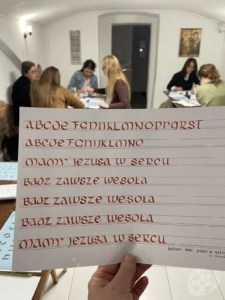 ABCDEFGHIJKLMNOPPQRST
ABCDEFGHIJKLMNO
MAMY JEZUSA W SERCU
BĄDŹ ZAWSZE WESOŁA
BĄDŹ ZAWSZE WESOŁA
BĄDŹ ZAWSZE WESOŁA
MAMY JEZUSA W SERCU